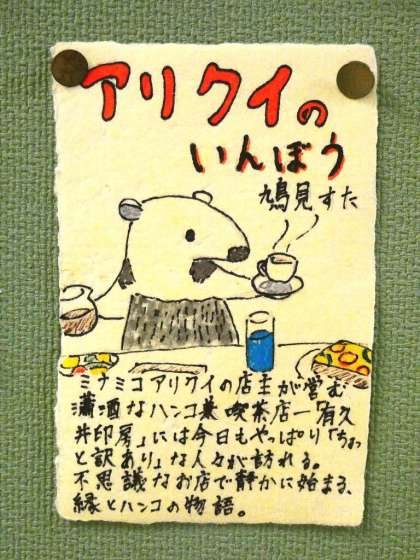 アリクイの
いんぼう
鳩見すた
ミナミコアリクイの店主が営む
瀟洒なハンコ兼喫茶店―「有久
井印房」には今日もやっぱり「ちょっ
と訳あり」な人々が訪れる。
不思議なお店で静かに始まる、
縁とハンコの物語。